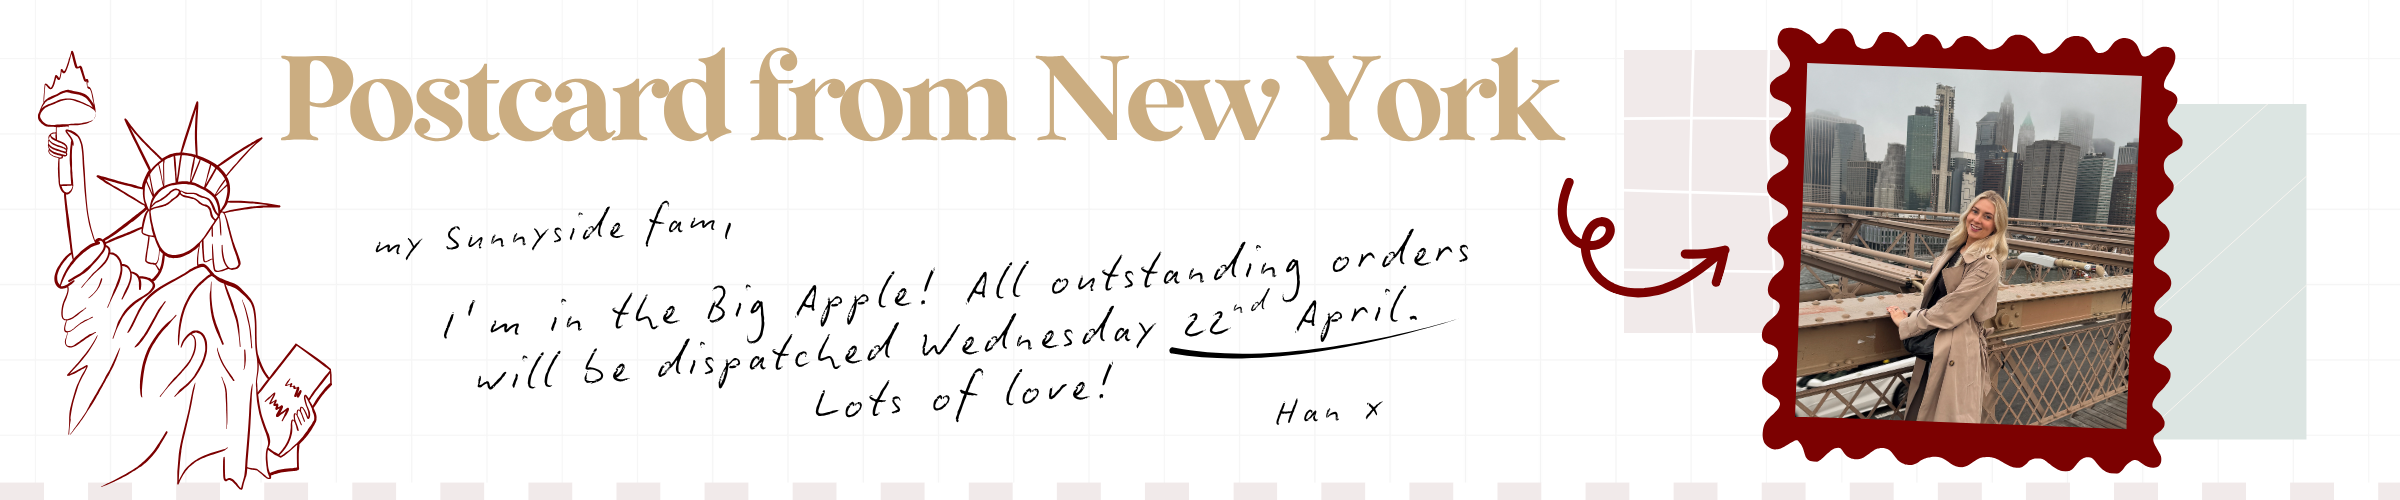 Postcard from New York
my Sunnyside fam,
I'm in the Big Apple! All outstanding orders
will be dispatched Wednesday 22nd April.
Lots of love!
Han x